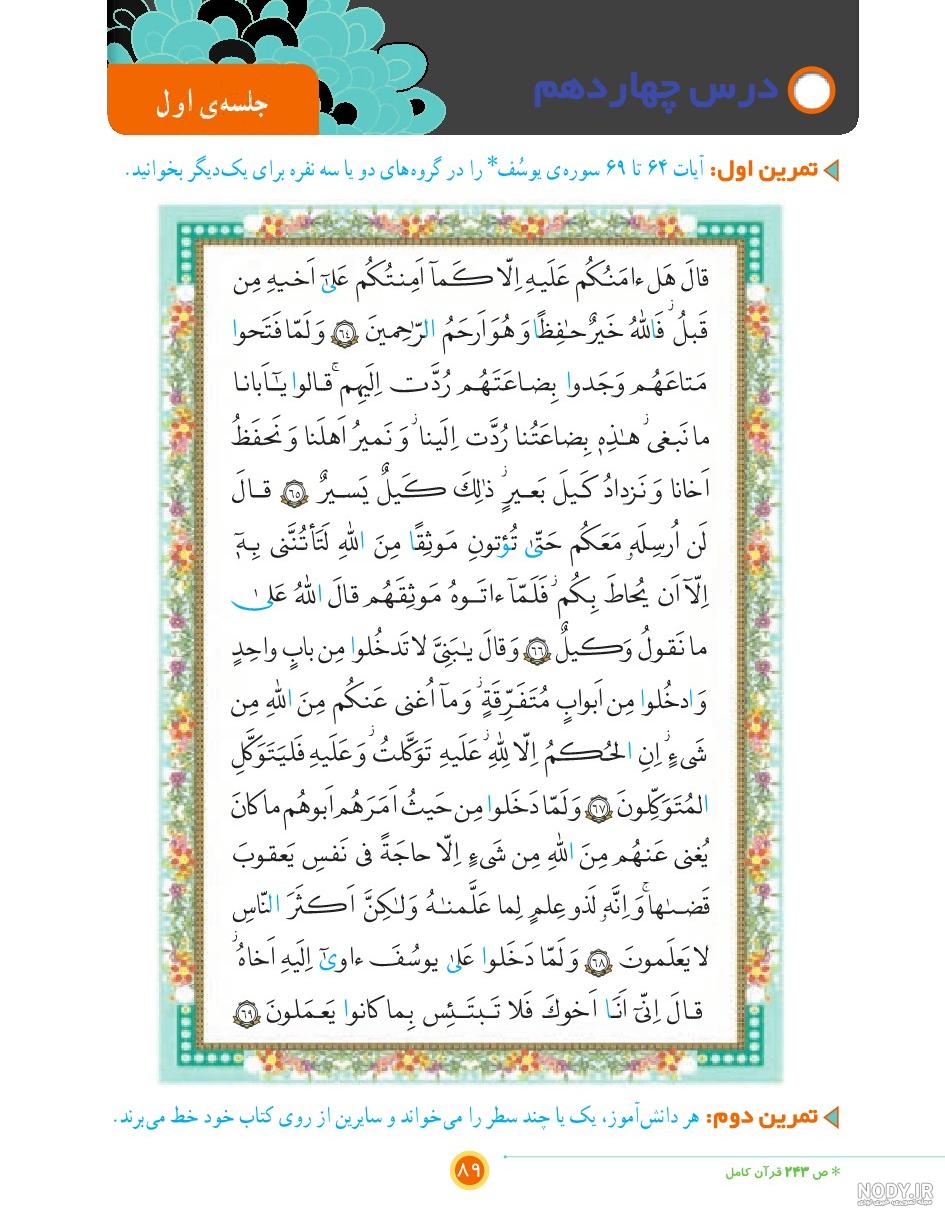 درس چهاردهم
جلسه‌ی اول
تمرین اول: آیات ۶۴ تا ۶۹ سوره‌ی یوسُف* را در گروه‌های دو یا سه نفره برای یک‌دیگر بخوانید.
قالَ هَل ءامَنُكُم عَلَيهِ اِلّا كَمآ اَمِنتُكُم عَلىٰٓ اَخيهِ مِن
قَبلُ ۖ فَاللّٰهُ خَيرٌ حٰفِظًا وَ هُوَ اَرحَمُ الرّٰحِمينَ ﴿٦٤﴾ وَ لَمّا فَتَحوا
مَتاعَهُم وَجَدوا بِضاعَتَهُم رُدَّت اِلَيهِم ۚ قالوا يٰٓاَبانا
ما نَبغى ۖ هٰذِهٖ بِضاعَتُنا رُدَّت اِلَينا ۖ وَ نَميرُ اَهلَنا وَ نَحفَظُ
اَخانا وَ نَزدادُ كَيلَ بَعيرٍ ۖ ذٰلِكَ كَيلٌ يَسيرٌ ﴿٦٥﴾ قالَ
لَن اُرسِلَهٗ مَعَكُم حَتّىٰ تُؤتونِ مَوثِقًا مِنَ اللّٰهِ لَتَأتُنَّنى بِهٖٓ
اِلّآ اَن يُحاطَ بِكُم ۖ فَلَمّآ ءاتَوهُ مَوثِقَهُم قالَ اللّٰهُ عَلىٰ
ما نَقولُ وَكيلٌ ﴿٦٦﴾ وَ قالَ يٰبَنِىَّ لا تَدخُلوا مِن بابٍ واحِدٍ
وَ ادخُلوا مِن اَبوابٍ مُتَفَرِّقَةٍ ۖ وَ مآ اُغنى عَنكُم مِنَ اللّٰهِ مِن
شَىءٍ ۖ اِنِ الحُكمُ اِلّا لِلّٰهِ ۖ عَلَيهِ تَوَكَّلتُ ۖ وَ عَلَيهِ فَليَتَوَكَّلِ
المُتَوَكِّلونَ ﴿٦٧﴾ وَ لَمّا دَخَلوا مِن حَيثُ اَمَرَهُم اَبوهُم ما كانَ
يُغنى عَنهُم مِنَ اللّٰهِ مِن شَىءٍ اِلّا حاجَةً فى نَفسِ يَعقوبَ
قَضىٰها ۚ وَ اِنَّهٗ لَذو عِلمٍ لِما عَلَّمنٰهُ وَ لٰكِنَّ اَكثَرَ النّاسِ
لا يَعلَمونَ ﴿٦٨﴾ وَ لَمّا دَخَلوا عَلىٰ يوسُفَ ءاوىٰٓ اِلَيهِ اَخاهُ ۖ
قالَ اِنّىٓ اَنَا اَخوكَ فَلا تَبتَئِس بِما كانوا يَعمَلونَ ﴿٦٩﴾
تمرین دوم: هر دانش‌آموز، یک یا چند سطر را می‌خواند و سایرین از روی کتاب خود خط می‌برند.
* ص ۲۴۳ قرآن کامل
۸۹
NODY.IR